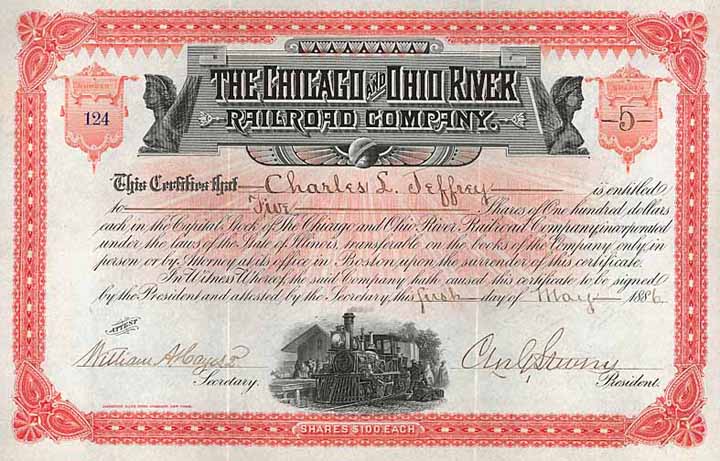 THE CHICAGO AND OHIO RIVER
RAILROAD COMPANY.
NUMBER
124
SHARES
5
This Certifies that Charles L. Jeffrey is entitled
to Five Shares of One hundred dollars
each in the Capital Stock of The Chicago and Ohio River Railroad Company, incorporated
under the laws of the State of Illinois, transferable on the books of the Company only, in
person or by Attorney at its office in Boston, upon the surrender of this certificate.
In Witness Whereof, the said Company hath caused this certificate to be signed
by the President and attested by the Secretary, this first day of May 1886
ATTEST
William A. Hayes 2
Secretary.
President.
AMERICAN BANK NOTE COMPANY, NEW YORK.
SHARES $100 EACH